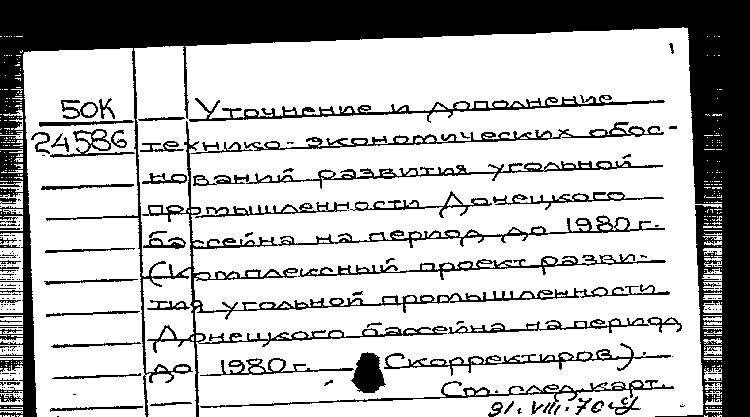 1
50К Уточнение и дополнение
24586 технико-экономических обос-
нований развития угольной
промышленности Донецкого
бассейна на период до 1980г.
(Комплексный проект разви-
тия угольной промышленности
Донецкого бассейна на период
до 1980г. Скорректиров.).
См. след. карт.
31.VIII.70г